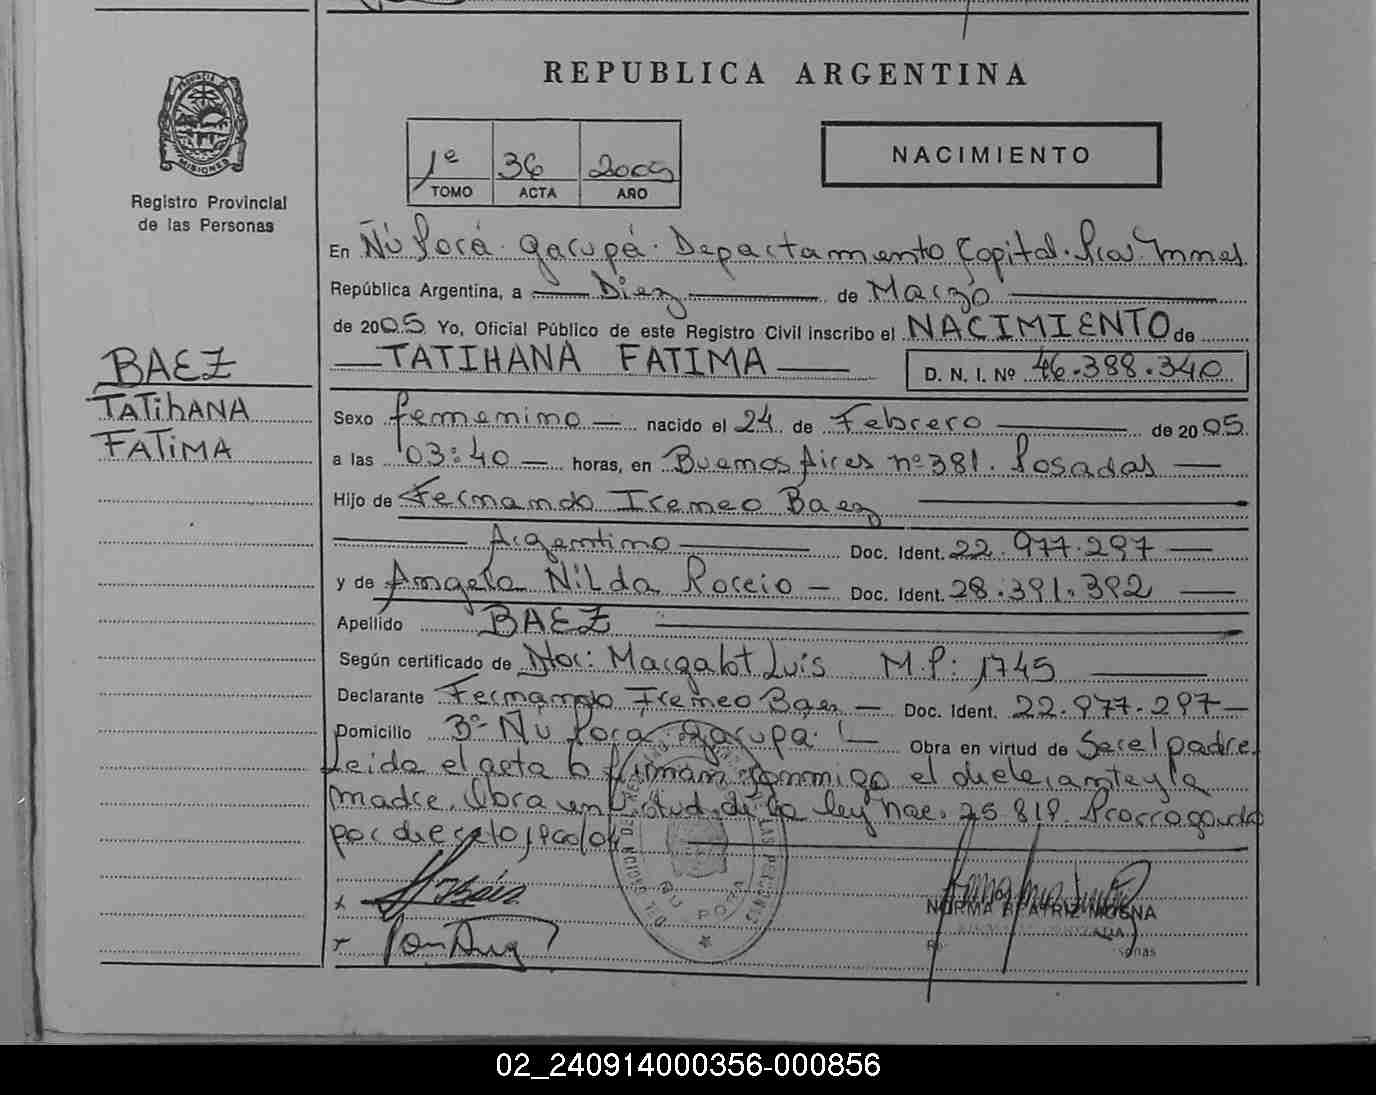 REPUBLICA ARGENTINA
PROVINCIA
MISIONES
Registro Provincial
de las Personas
1º 36 2005
TOMO ACTA AÑO
NACIMIENTO
En Ñú Porá. Garupá. Departamento Capital. Pcia. Mnes
República Argentina, a Diez de Marzo
de 2005 Yo, Oficial Público de este Registro Civil inscribo el NACIMIENTO de
TATIHANA FATIMA
D. N. I. Nº 46.388.340
BAEZ
TATIHANA
FATIMA
Sexo femenino nacido el 24 de Febrero de 2005
a las 03:40 horas, en Buenos Aires nº 381. Posadas
Hijo de Fernando Ireneo Baez
Argentino Doc. Ident. 22.977.297
y de Angela Nilda Doc. Ident. 28.391.392
Apellido BAEZ
Según certificado de Doc: Margalot Luis M.P: 1745
Declarante Fernando Ireneo Baez Doc. Ident. 22.977.297
Domicilio Bº Ñú Porá. Garupá. Obra en virtud de Ser el padre.
Leida el acta la firman conmigo el declarante y la
madre. Obra en virtud de la ley nac. 25.819. Prorrogada
por decreto
DELEGACION
ÑU PORA
NORMA BEATRIZ
02_240914000356-000856